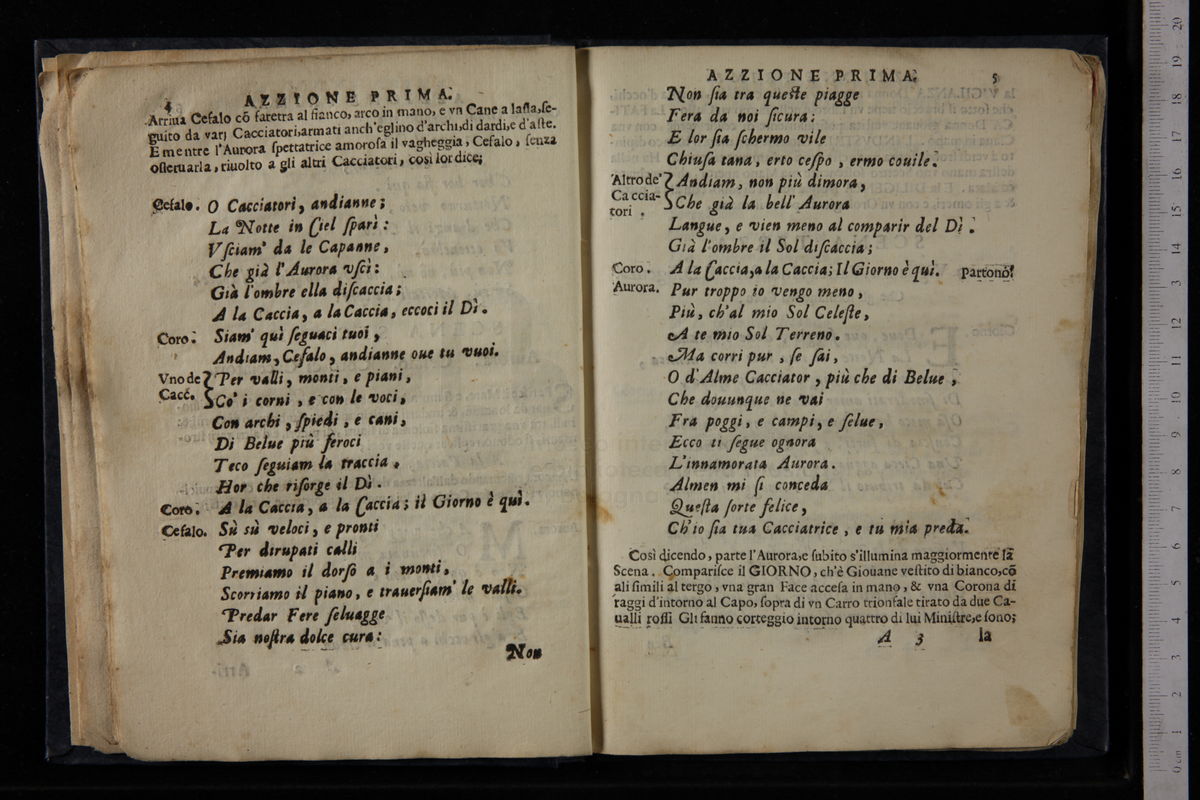 4
AZZIONE PRIMA.
Arriua Cefalo cõ faretra al fianco, arco in mano, e vn Cane a lassa, se-
guito da varj Cacciatori, armati anch'eglino d'archi, di dardi, e d'aste.
E mentre l'Aurora spettatrice amorosa il vagheggia, Cefalo, senza
osseruarla, riuolto a gli altri Cacciatori, così lor dice;
Cefalo. O Cacciatori, andianne;
La Notte in Ciel sparì:
Vsciam' da le Capanne,
Che già l'Aurora vscì:
Già l'ombre ella discaccia;
A la Caccia, a la Caccia, eccoci il Dì.
Coro. Siam' quì seguaci tuoi,
Andiam, Cefalo, andianne oue tu vuoi.
Vno de Per valli, monti, e piani,
Cacc. Co' i corni, e con le voci,
Con archi, spiedi, e cani,
Di Belue più feroci
Teco seguiam la traccia.
Hor che risorge il Dì.
Coro. A la Caccia, a la Caccia; il Giorno è quì.
Cefalo. Sù sù veloci, e pronti
Per dirupati calli
Premiamo il dorso a i monti,
Scorriamo il piano, e trauersiam' le valli.
Predar Fere seluagge
Sia nostra dolce cura:
Non
AZZIONE PRIMA. 5
Non sia tra queste piagge
Fera da noi sicura:
E lor sia schermo vile
Chiusa tana, erto cespo, ermo couile.
Altro de' Andiam, non più dimora,
Caccia- Che già la bell' Aurora
tori. Langue, e vien meno al comparir del Dì.
Già l'ombre il Sol discaccia;
Coro. A la Caccia, a la Caccia; Il Giorno è quì. partono.
Aurora. Pur troppo io vengo meno,
Più, ch'al mio Sol Celeste,
A te mio Sol Terreno.
Ma corri pur, se sai,
O d'Alme Cacciator, più che di Belue,
Che douunque ne vai
Fra poggi, e campi, e selue,
Ecco ti segue ognora
L'innamorata Aurora.
Almen mi si conceda
Questa sorte felice,
Ch'io sia tua Cacciatrice, e tu mia preda.
Così dicendo, parte l'Aurora, e subito s'illumina maggiormente la
Scena. Comparisce il GIORNO, ch'è Giouane vestito di bianco, cõ
ali simili al tergo, vna gran Face accesa in mano, & vna Corona di
raggi d'intorno al Capo, sopra di vn Carro trionfale tirato da due Ca-
ualli rossi Gli fanno corteggio intorno quattro di lui Ministre, e sono;
A 3 la